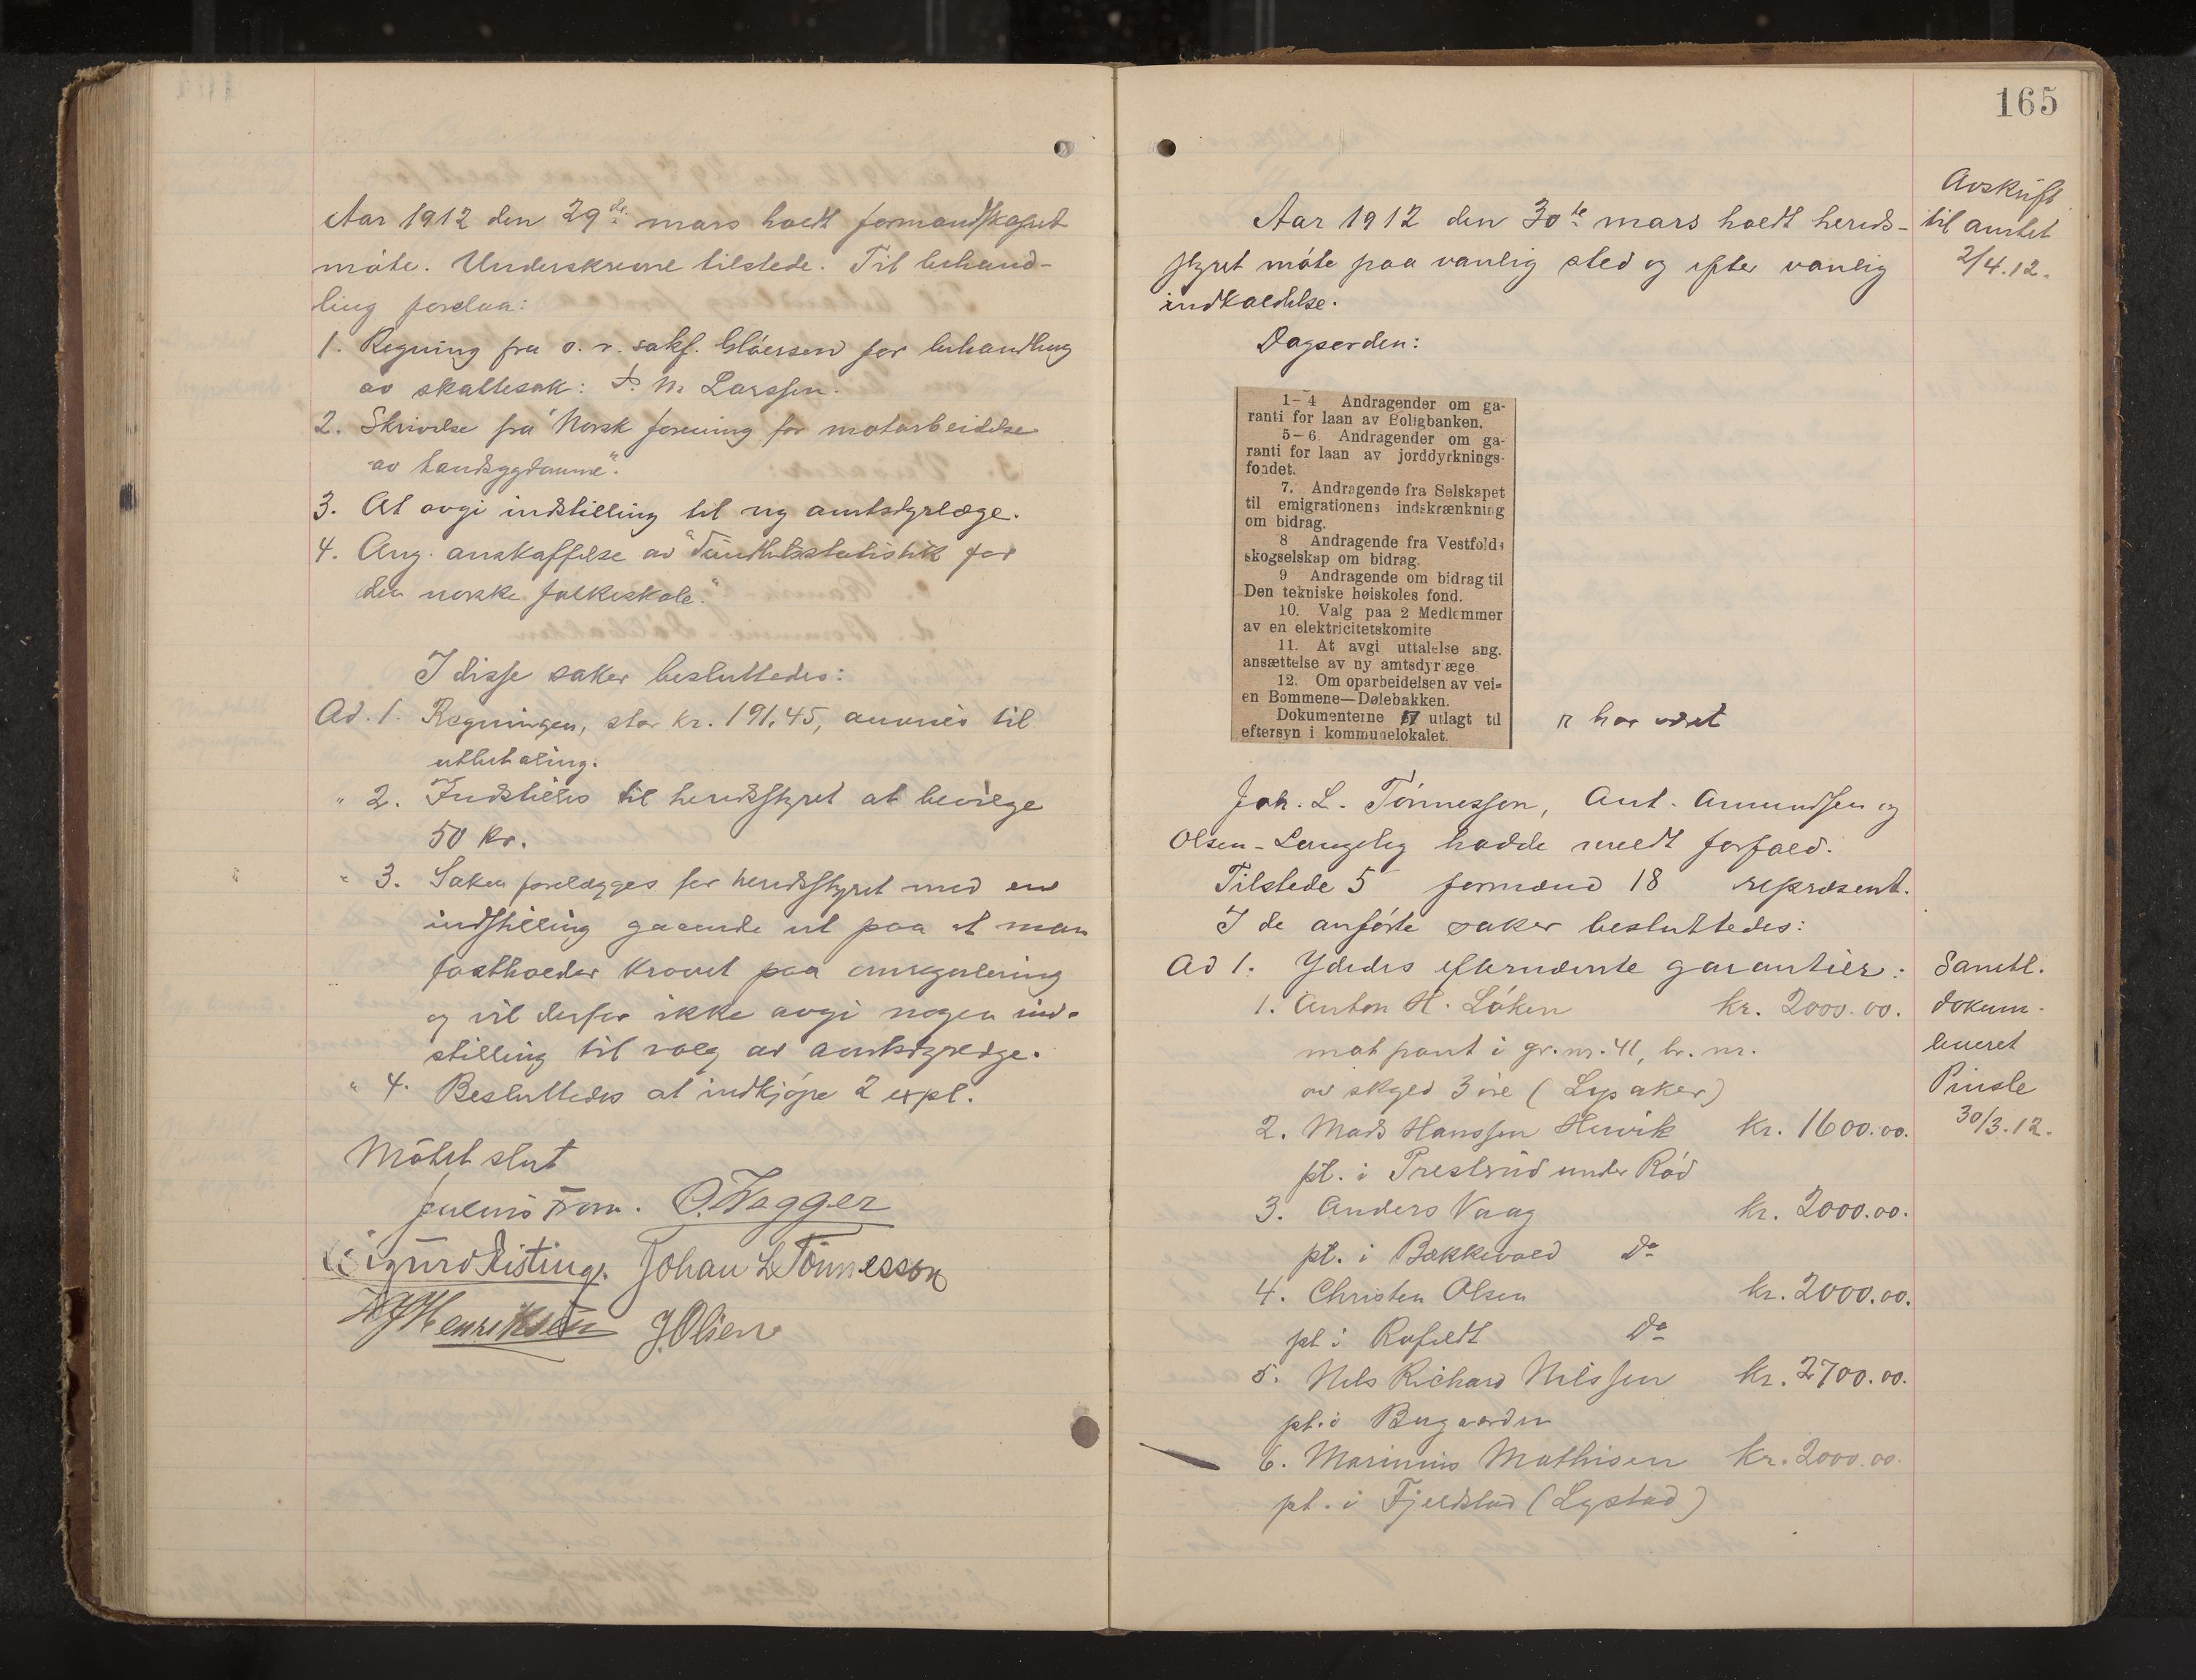 Aar 1912 den 29de mars holdt formandskapet
møte. Underskrevne tilstede. Til behand-
ling forelaa:
1. Regning fra o. r. sakf. Gløersen for behandling
av skattesak: N. Larssen.
2. Skrivelse fra "Norsk forening for motarbeidelse
av landsygdomme".
3. At avgi indstilling til ny amtsdyrlæge.
4. Ang. anskaffelse av "Sundhetsstatistik for
den norske folkeskole".
I disse saker besluttedes:
Ad. 1. Regningen, stor kr. 191,45, anvises til
utbetaling.
" 2. Indstilles til heredsstyret at bevilge
50 kr.
" 3. Saken forelægges for heredsstyret med en
indstilling gaaende ut paa at man
fastholder kravet paa omregulering
og vil derfor ikke avgi nogen ind-
stilling til valg av amtsdyrlæge.
" 4. Besluttedes at indkjøpe 2 expl.
Møtet slut
Julius Fram. O. Wegger
Sigurd Risting. Johan L Tønnesson
Henriksen J. Olsen
165
Avskrift
til amtet
2/4.12.
Aar 1912 den 30te mars holdt hereds-
styret møte paa vanlig sted og efter vanlig
indkaldelse.
Dagsorden:
1-4 Andragender om ga-
ranti for laan av Boligbanken.
5-6. Andragender om ga-
ranti for laan av jorddyrknings-
fondet.
7. Andragende fra Selskapet
til emigrationens indskrænkning
om bidrag.
8 Andragende fra Vestfolds
skogselskap om bidrag.
9 Andragende om bidrag til
Den tekniske høiskoles fond.
10. Valg paa 2 Medlemmer
av en elektricitetskomite
11. At avgi uttalelse ang.
ansættelse av ny amtsdyrlæge
12. Om oparbeidelsen av vei-
en Bommene—Dølebakken.
Dokumenterne utlagt til
eftersyn i kommunelokalet.
har været
Joh. L. Tønnesson, Ant. Amundsen og
Olsen-Langeby hadde meldt forfald.
Tilstede 5 formænd 18 repræsent.
I de anførte saker besluttedes:
Ad 1. Ydedes efternævnte garantier:
Samtl.
dokum-
leveret
Pinsle
30/3.12.
1. Anton H. Løken kr. 2000.00.
mot pant i gr. nr. 41, br. nr.
av skyld 3 øre (Lysaker)
2. Mads Hanssen Hervik kr. 1600.00.
pt. i Prestrud under Rød
3. Anders Vaag kr. 2000.00.
pt. i Bækkevold Do
4. Christen Olsen kr. 2000.00.
pt i Rofeldt Do
5. Nils Richard Nilssen kr. 2700.00.
pt. i Bugaarden
6. Marinius Mathisen kr. 2000.00.
pt. i Fjeldstad (Lystad)